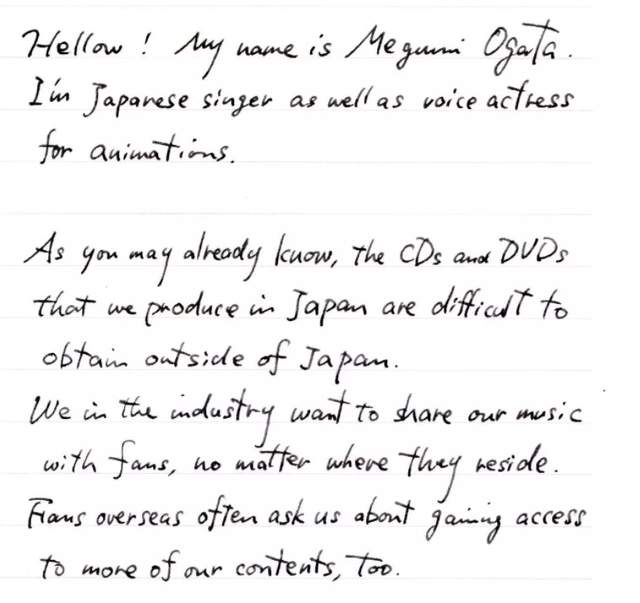 Hellow! My name is Megumi Ogata.
I'm Japanese singer as well as voice actress
for animations.
As you may already know, the CDs and DVDs
that we produce in Japan are difficult to
obtain outside of Japan.
We in the industry want to share our music
with fans, no matter where they reside.
Fans overseas often ask us about gaining access
to more of our contents, too.